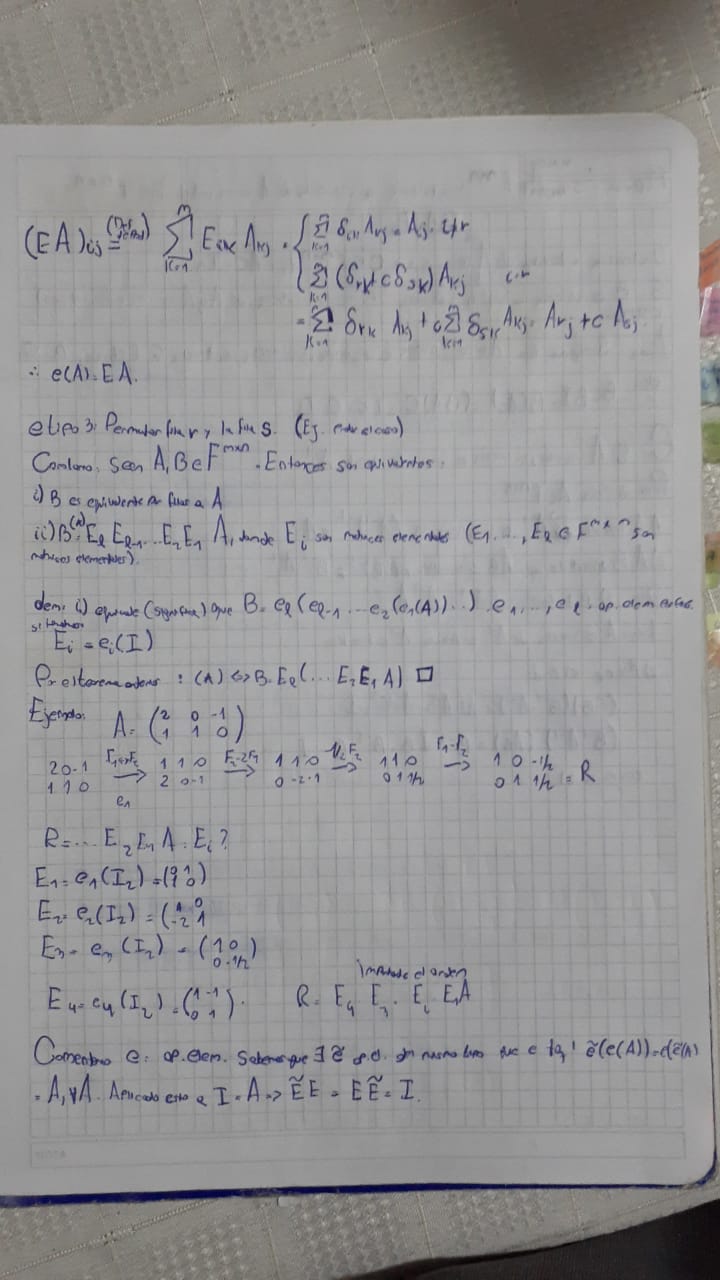 (EA)ij = (Def prod) Σ_{k=1}^{m} Eik Akj = { Σ_{k=1}^{m} δik Akj = Aij i≠r
{ Σ_{k=1}^{m} (δrk + cδsk) Akj i=r
= Σ_{k=1}^{m} δrk Akj + c Σ_{k=1}^{m} δsk Akj = Arj + c Asj
∴ e(A) = EA.
e tipo 3: Permutar fila r y la fila s. (Ej.
Corolario: Sean A, B ∈ F^{mxn}. Entonces son equivalentes:
i) B es equivalente por filas a A
ii) B (*)= Eℓ Eℓ-1 ... E2 E1 A, donde Ei son matrices elementales (E1, ..., Eℓ ∈ F^{mxm} son
matrices elementales).
dem: i) equivale (significa) que B = eℓ(eℓ-1 ... e2(e1(A))...) e1, ..., eℓ op. elem
si
Ei = ei(I)
Por el teorema : (*) ⇔ B = Eℓ(... E2 E1 A) □
Ejemplo: A = (2 0 -1
1 1 0)
2 0 -1 F1↔F2 → 1 1 0 F2-2F1 → 1 1 0 -1/2F2 → 1 1 0 F1-F2 → 1 0 -1/2
1 1 0 e1 2 0 -1 0 -2 -1 0 1 1/2 0 1 1/2 = R
R = ... E2 E1 A. Ei?
E1 = e1(I2) = (0 1
1 0)
E2 = e2(I2) = (1 0
-2 1
E3 = e3(I2) = (1 0
0 -1/2)
E4 = e4(I2) = (1 -1
0 1). R = E4 E3 . E2 E1 A
Importante el orden
Comentario e: op. elem. Sabemos que ∃ ẽ op.el. del mismo tipo que e tq' ẽ(e(A)) = e(ẽ(A))
= A, ∀A. Aplicado esto a I = A => ẼE = EẼ = I.